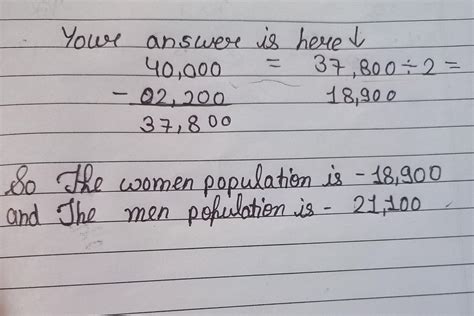 Your answer is here ↓
40,000 = 37,800 ÷ 2 =
- 02,200 18,900
37,800
So The women population is - 18,900
and The men population is - 21,100